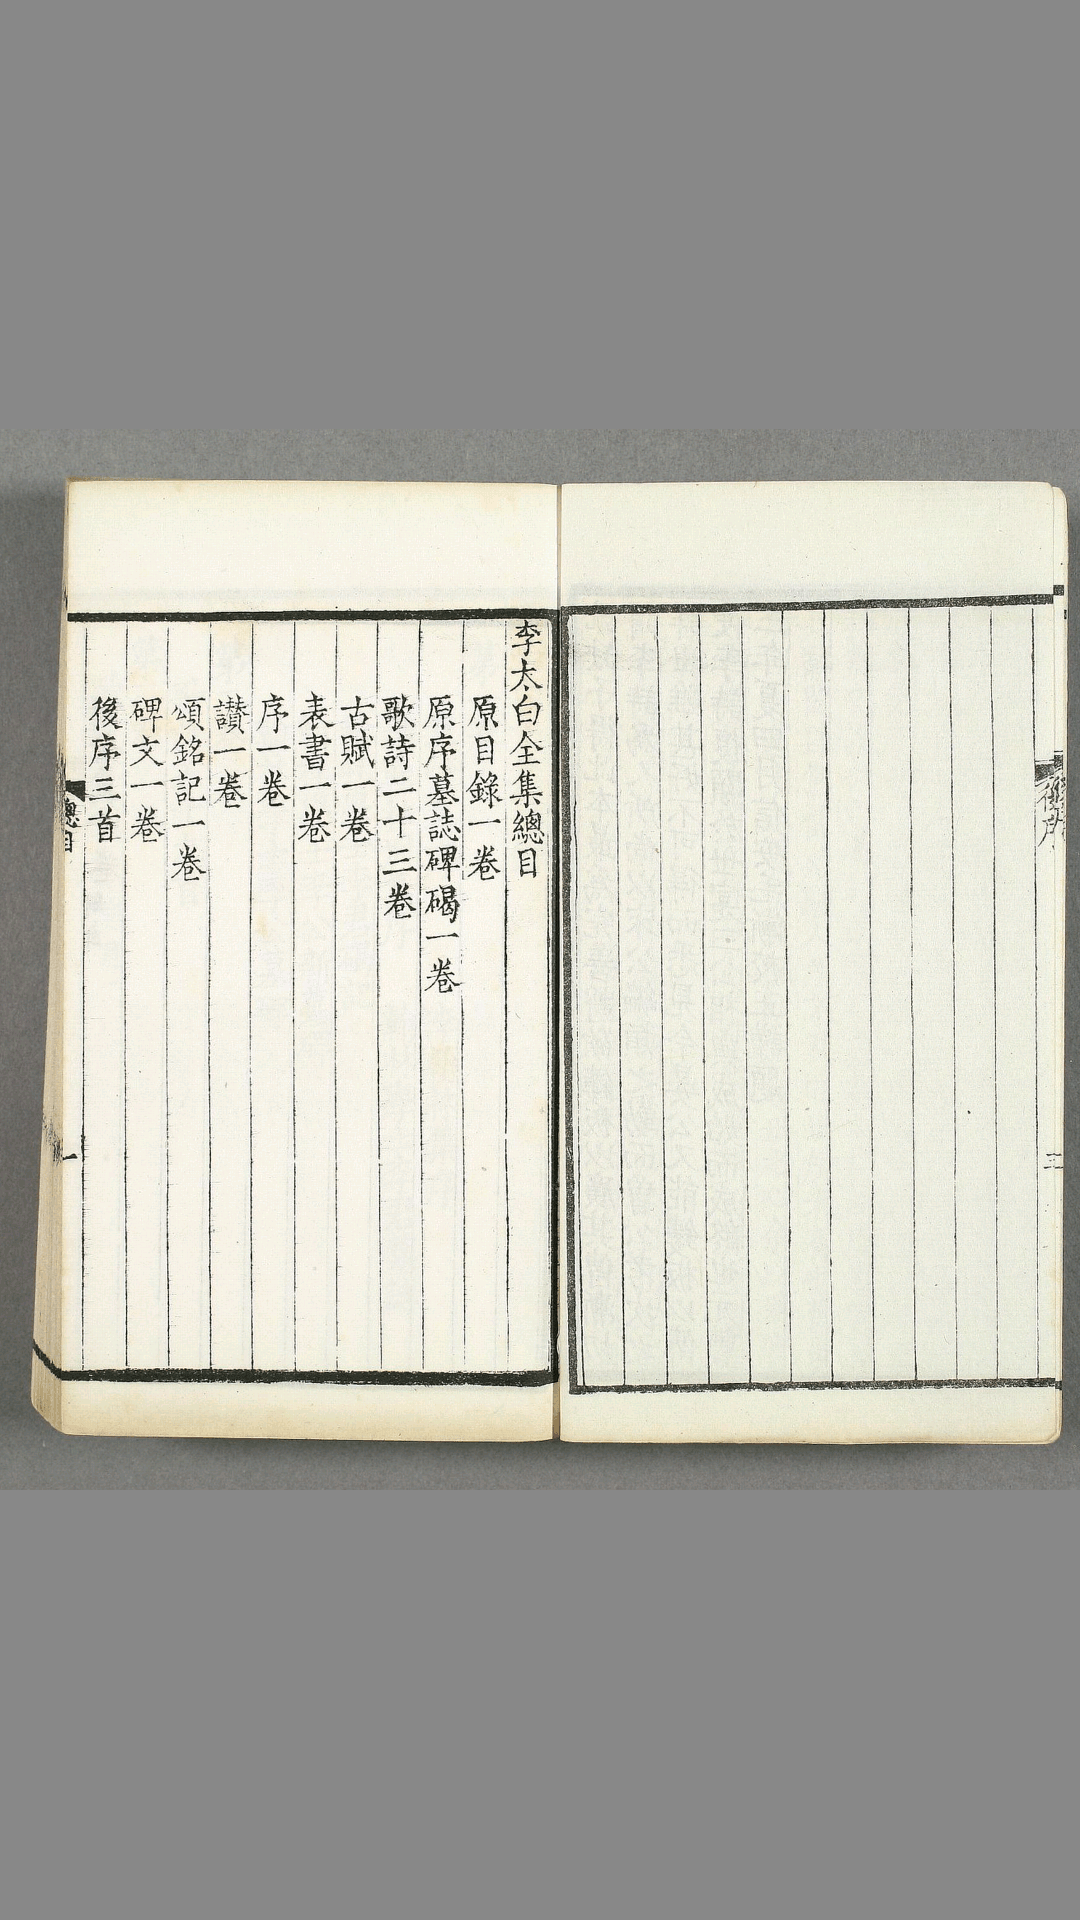 後序
三
李太白全集總目
原目錄一卷
原序墓誌碑碣一卷
歌詩二十三卷
古賦一卷
表書一卷
序一卷
讚一卷
頌銘記一卷
碑文一卷
後序三首
總目
一